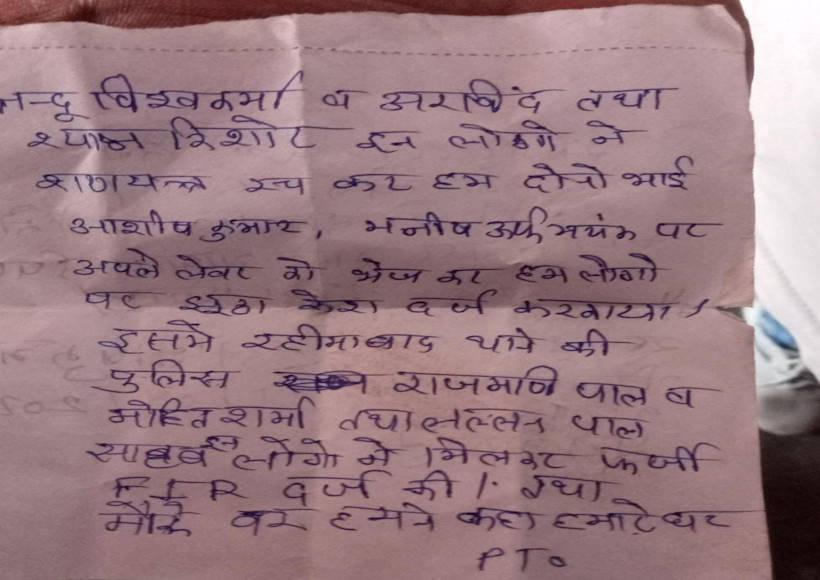 नन्दू विश्वकर्मा व अरविंद तथा
श्याम किशोर इन लोगो ने
शणयन्त्र रच कर हम दोनो भाई
आशीष कुमार, मनीष उर्फ मयंक पर
अपने लेबर को भेज कर हम लोगो
पर झूठा केश दर्ज करवाया।
इसमें रहीमाबाद थाने की
पुलिस राजमणि पाल व
मोहित शर्मा तथा लल्लन पाल
इन लोगो ने मिलकर फर्जी
FIR दर्ज की। तथा
मौके पर हमने कहा हमारे घर
PTO